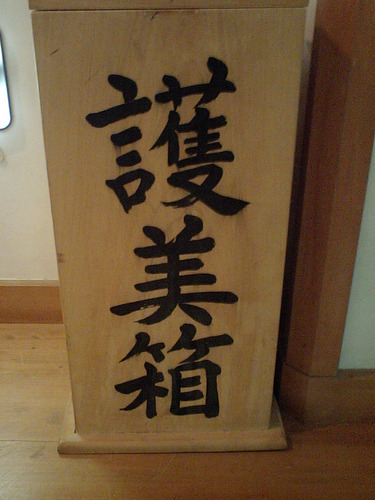 護美箱